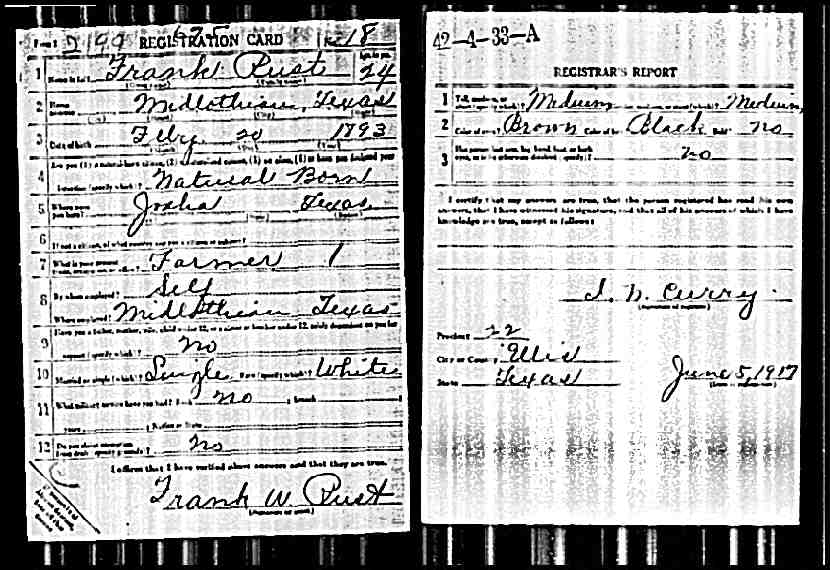 Form 1 2199 REGISTRATION CARD No. 18
1 Name in full Frank Rust Age, in yrs. 24
2 Home address Midlothian, Texas
3 Date of birth Feby 20 1893
4 Are you (1) a natural-born citizen, (2) a naturalized citizen, (3) an alien, (4) or have you declared your
intention (specify which)? Natural Born
5 Where were you born? Texas
6 If not a citizen, of what country are you a citizen or subject?
7 What is your present trade, occupation, or office? Farmer 1
8 By whom employed? Self
Where employed? Midlothian Texas
9 Have you a father, mother, wife, child under 12, or a sister or brother under 12, solely dependent on you for
support (specify which)? No
10 Married or single (which)? Single Race (specify which)? White
11 What military service have you had? Rank No ; branch
years ; Nation or State
12 Do you claim exemption from draft (specify grounds)? No
I affirm that I have verified above answers and that they are true.
Frank W. Rust
(Signature or mark)
42-4-33-A
REGISTRAR'S REPORT
1 Tall, medium, or short (specify which)? Medium Slender, medium, or stout (which)? Medium
2 Color of eyes? Brown Color of hair? Black Bald? No
3 Has person lost arm, leg, hand, foot, or both
eyes, or is he otherwise disabled (specify)? No
I certify that my answers are true, that the person registered has read his own
answers, that I have witnessed his signature, and that all of his answers of which I have
knowledge are true, except as follows:
Curry
(Signature of registrar)
Precinct 22
City or County Ellis
State Texas June 5, 1917
(Date of registration)